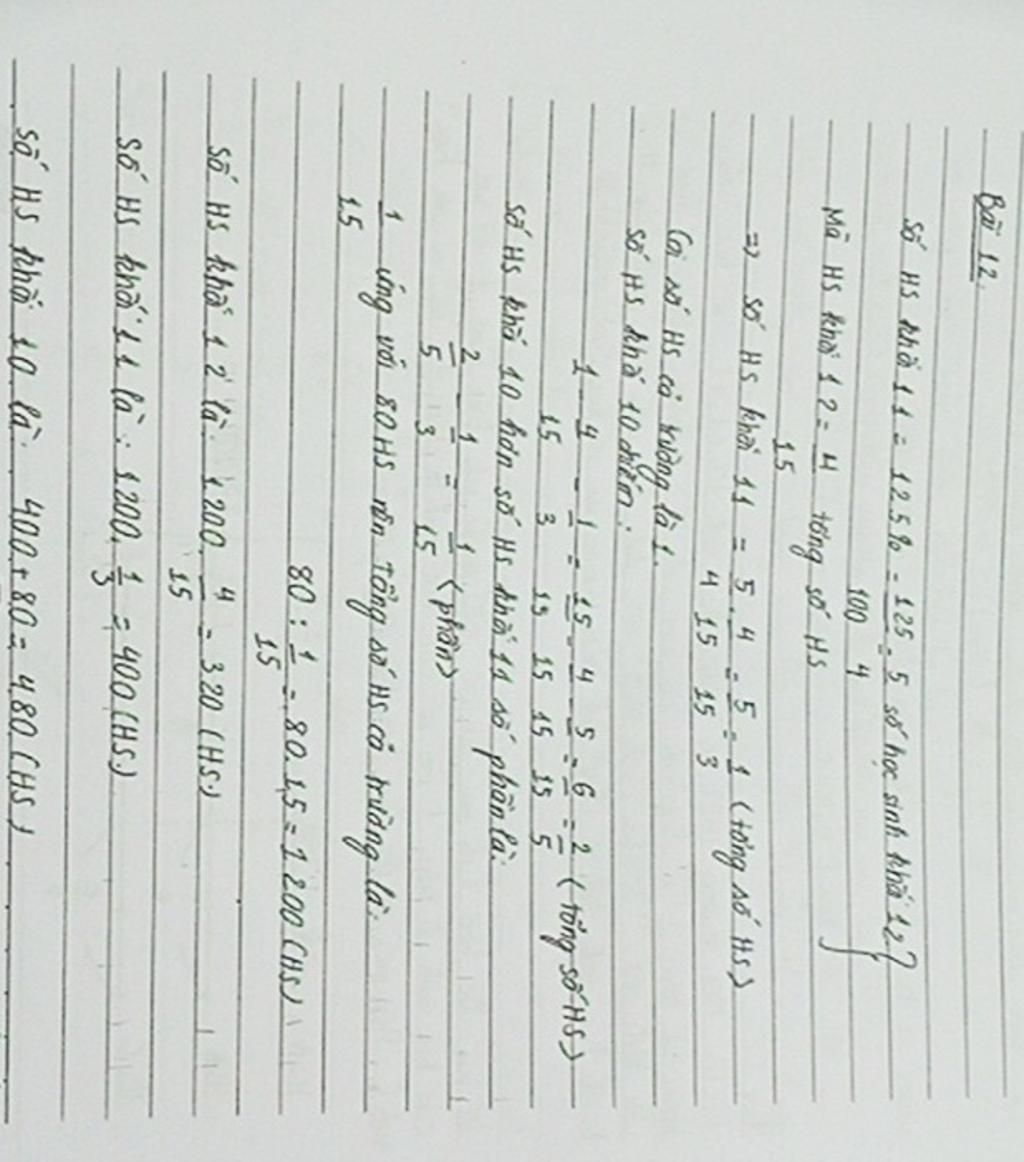 Bài 12.
Số HS khối 11 = 125% = 125/100 = 5/4 số học sinh khối 12
Mà HS khối 12 = 4/15 tổng số HS
=> số HS khối 11 = 5/4 . 4/15 = 5/15 = 1/3 (tổng số HS)
Coi số HS cả trường là 1.
Số HS khối 10 chiếm:
1 - 4/15 - 1/3 = 15/15 - 4/15 - 5/15 = 6/15 = 2/5 (tổng số HS)
Số HS khối 10 hơn số HS khối 11 số phần là:
2/5 - 1/3 = 1/15 (phần)
1/15 ứng với 80 HS nên tổng số HS cả trường là:
80 : 1/15 = 80.15 = 1200 (HS)
Số HS khối 12 là: 1200. 4/15 = 320 (HS)
Số HS khối 11 là: 1200. 1/3 = 400 (HS)
Số HS khối 10 là: 400 + 80 = 480 (HS)